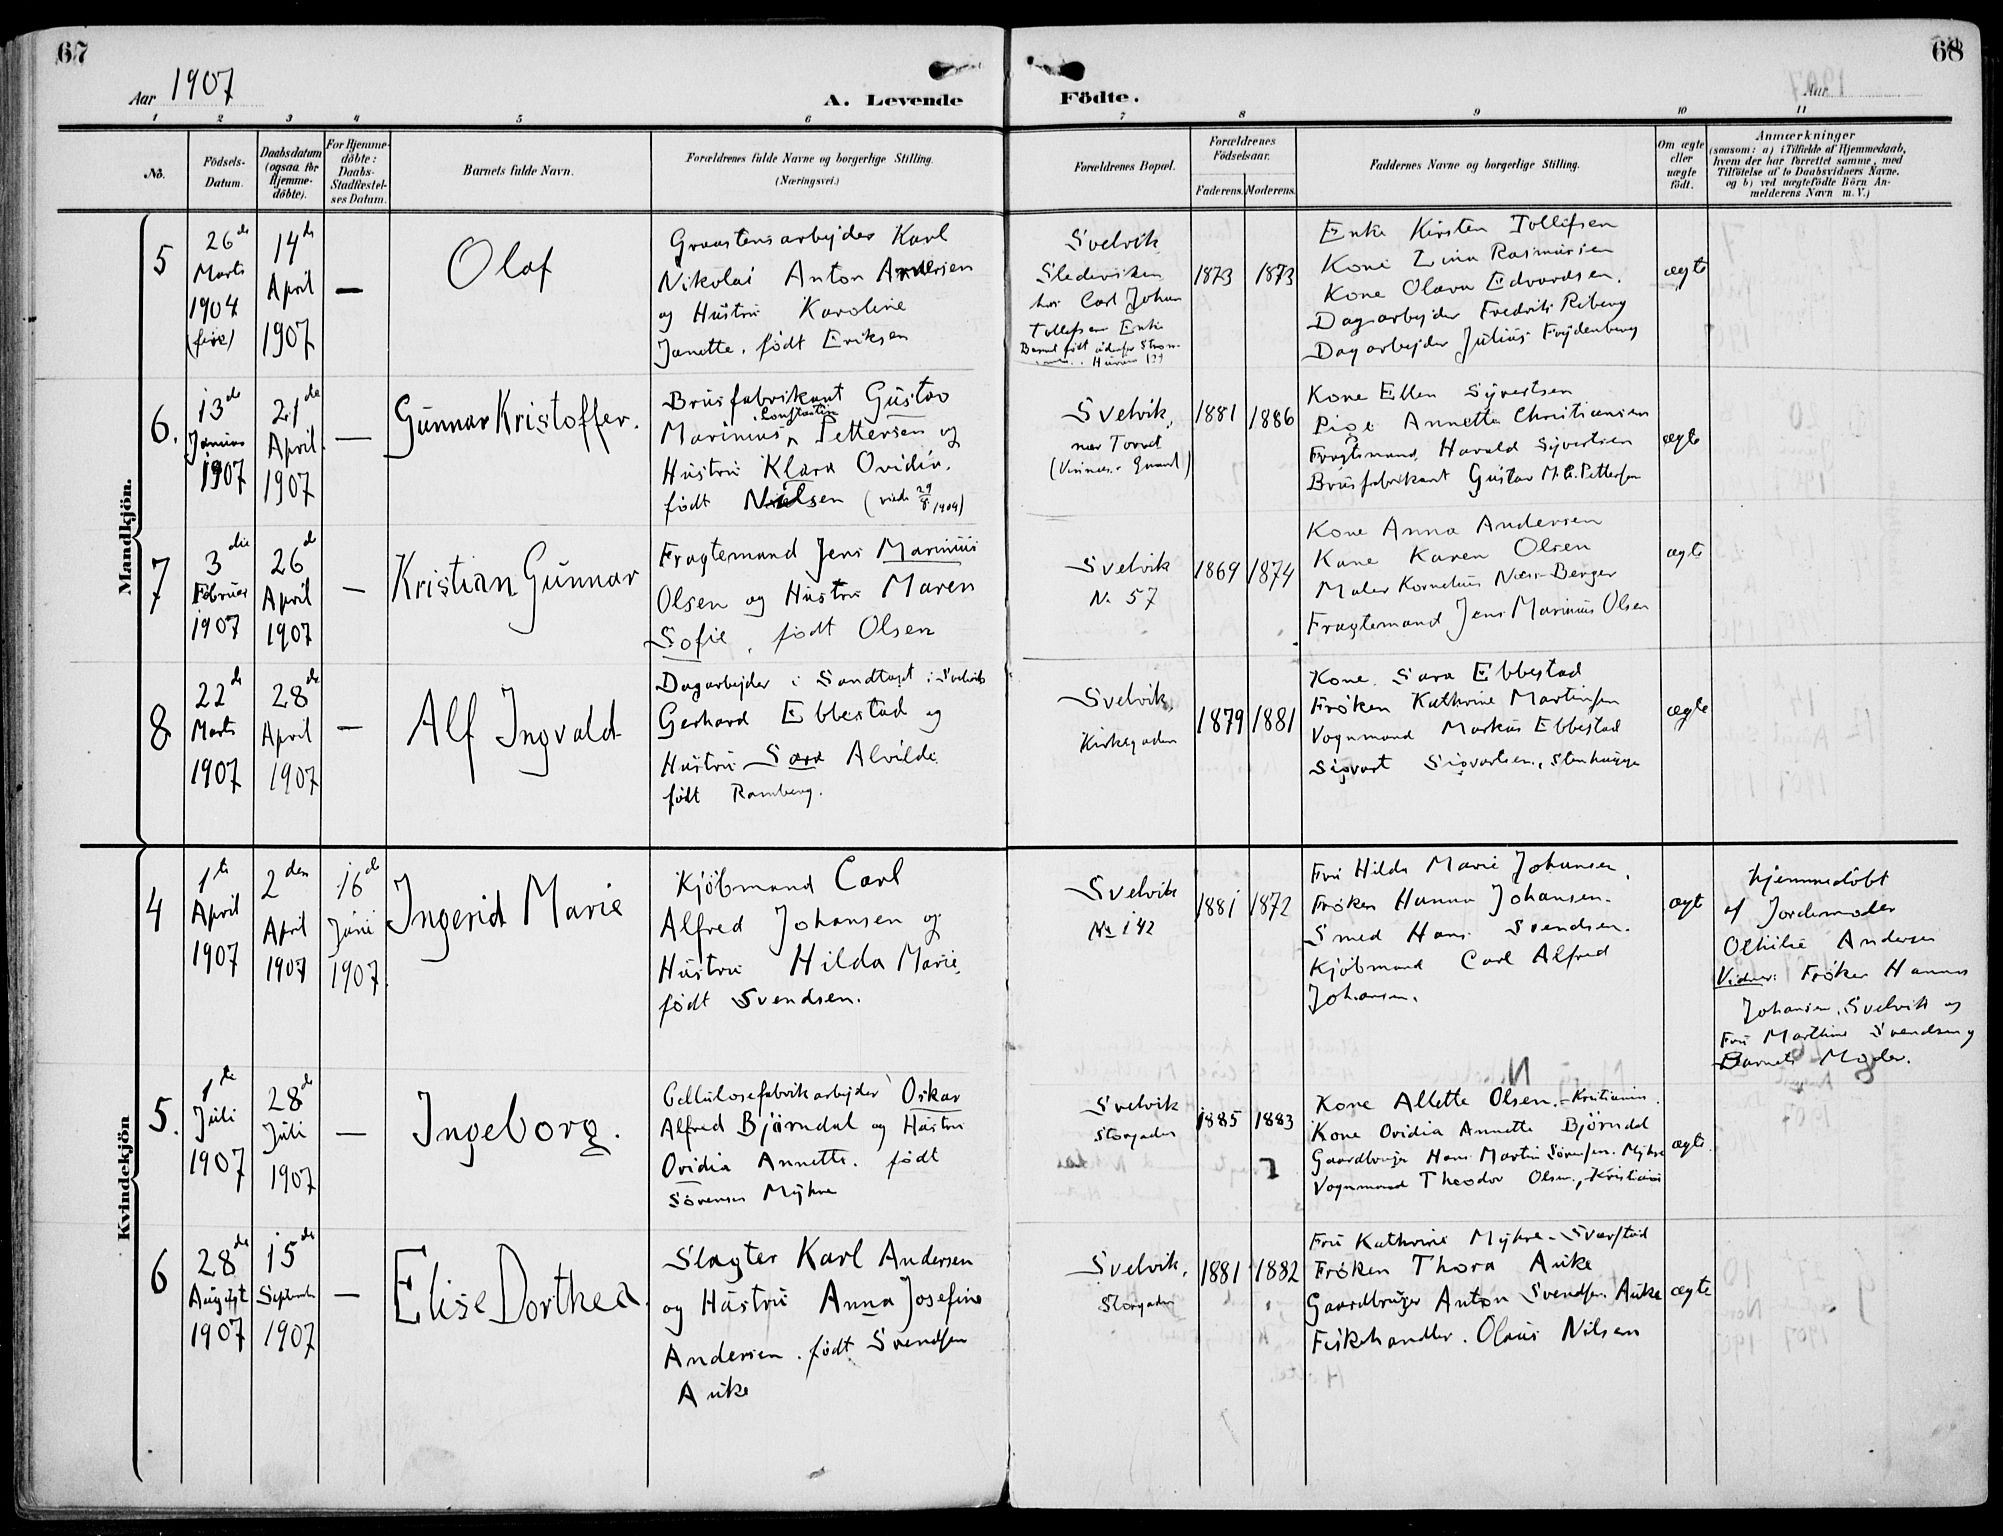 67
68
Aar 1907
A. Levende Födte.
1 2 3 4 5 6 7 8 9 10 11
No.
Födsels-
Datum.
Daabsdatum
(ogsaa for
Hjemme-
döbte).
For Hjemme-
döbte:
Daabs-
Stadfæstel-
ses Datum.
Barnets fulde Navn.
Forældrenes fulde Navne og borgerlige Stilling.
(Næringsvei.)
Forældrenes Bopæl.
Forældrenes
Födselsaar.
Faderens. Moderens.
Faddernes Navne og borgerlige Stilling.
Om ægte
eller
uægte
födt.
Anmærkninger
(saasom: a) i Tilfælde af Hjemmedaab,
hvem der har forrettet samme, med
Tilföielse af to Daabsvidners Navne,
og b) ved uægtefödte Börn An-
melderens Navn m. V.)
Mandkjön.
5
26de
Marts
1904
(fire)
14de
April
1907
—
Olaf
Graastensarbejder Karl
Nikolai Anton Andersen
og Hustru Karoline
Janette, født Eriksen
Svelvik
hos Carl Johan
Tollefsens Enke
1873
1873
Enke Kirsten Tollefsen
Kone Lina Rasmussen
Kone Olava Edvardsen.
Dagarbejder Fredrik Reberg
Dagarbejder Julius Frydenberg
ægte
6.
13de
Januar
1907
21de
April
1907
—
Gunnar Kristoffer.
Brusfabrikant Gustav
Constantin
Marinius Pettersen og
Hustru Klara Ovidia.
født Nielsen (viede 29/8 1904)
Svelvik,
nær Torvet
1881
1886
Kone Ellen Syvertsen
Pige Annette Christiansen
Fragtemand Harald Syvertsen
Brusfabrikant Gustav M.C. Pettersen
ægte
7
3die
Februar
1907
26de
April
1907
—
Kristian Gunnar
Fragtemand Jens Marinius
Olsen og Hustru Maren
Sofie, født Olsen
Svelvik
No 57
1869
1874
Kone Anna Andersen
Kone Karen Olsen
Maler Kornelius Næss-Berger
Fragtemand Jens Marinius Olsen
ægte
8
22de
Marts
1907
28de
April
1907
—
Alf Ingvald
Dagarbejder i Sandtaget i Svelvik
Gerhard Ebbestad og
Hustru Sara Alvilde
født Ramberg.
Svelvik,
Kirkegaden
1879
1881
Kone Sara Ebbestad
Frøken Kathrine Martinsen
Vognmand Markus Ebbestad
Sigvart Sigvartsen, Stenhugger
ægte
Kvindekjön
4
1ste
April
1907
2den
April
1907
16de
Juni
1907
Ingerid Marie
Kjöbmand Carl
Alfred Johansen og
Hustru Hilda Marie,
født Svendsen.
Svelvik
No 142
1881
1872
Fru Hilda Marie Johansen,
Frøken Hanna Johansen.
Smed Hans Svendsen.
Kjöbmand Carl Alfred
Johansen.
ægte
hjemmedöbt
af Jordemoder
Othilie Andersen
Vidner: Frøken Hanna
Johansen, Svelvik og
Fru Marthine Svendsen,
Barnets Moder.
5.
1ste
Juli
1907
28de
Juli
1907
—
Ingeborg.
Cellulosefabrikarbejder Oskar
Alfred Björndal og Hustru
Ovidia Annette, født
Sörensen Myhre
Svelvik
Storgaden
1885
1883
Kone Allette Olsen, Kristiania.
Kone Ovidia Annette Björndal
Gaardbruger Hans Martin Sörensen Myhre
Vognmand Theodor Olsen, Kristiania
ægte.
6
28de
August
1907
15de
September
1907
—
Elise Dorthea.
Slagter Karl Andersen
og Hustru Anna Josefine
Andersen, født Svendsen
Auke
Svelvik,
Storgaden
1881
1882
Fru Kathrine Myhre-Svarstad
Frøken Thora Auke
Gaardbruger Anton Svendsen Auke
Fiskehandler Olaus Nilsen
ægte